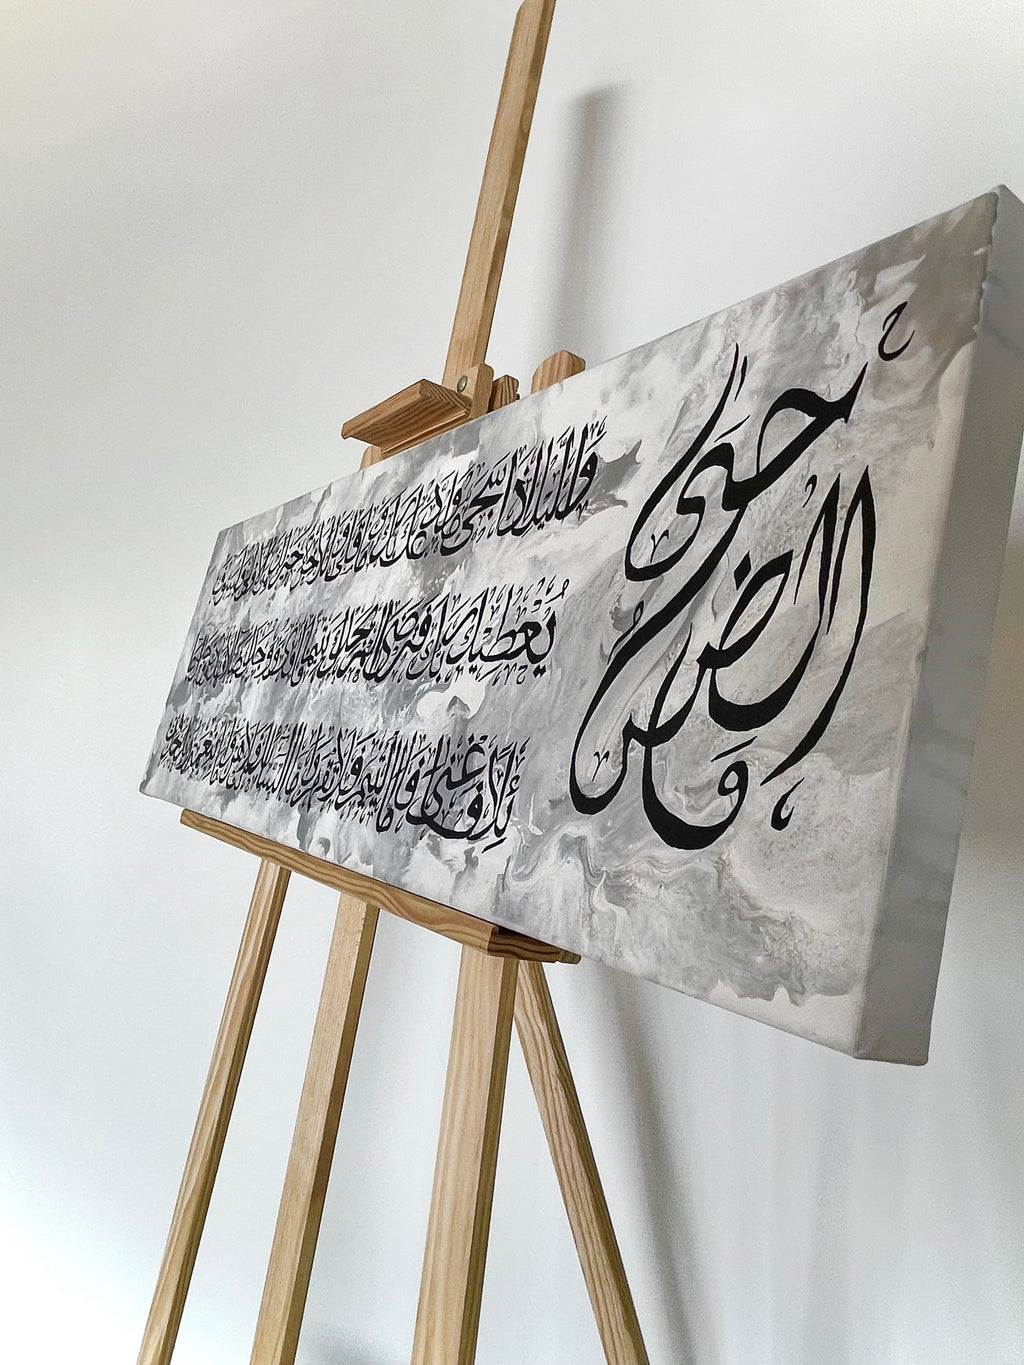 والضحى
والليل إذا سجى ما ودعك ربك وما قلى وللآخرة خير لك من الأولى ولسوف
يعطيك ربك فترضى ألم يجدك يتيما فآوى ووجدك ضالا فهدى ووجدك عا
ئلا فأغنى فأما اليتيم فلا تقهر وأما السائل فلا تنهر وأما بنعمة ربك فحدث